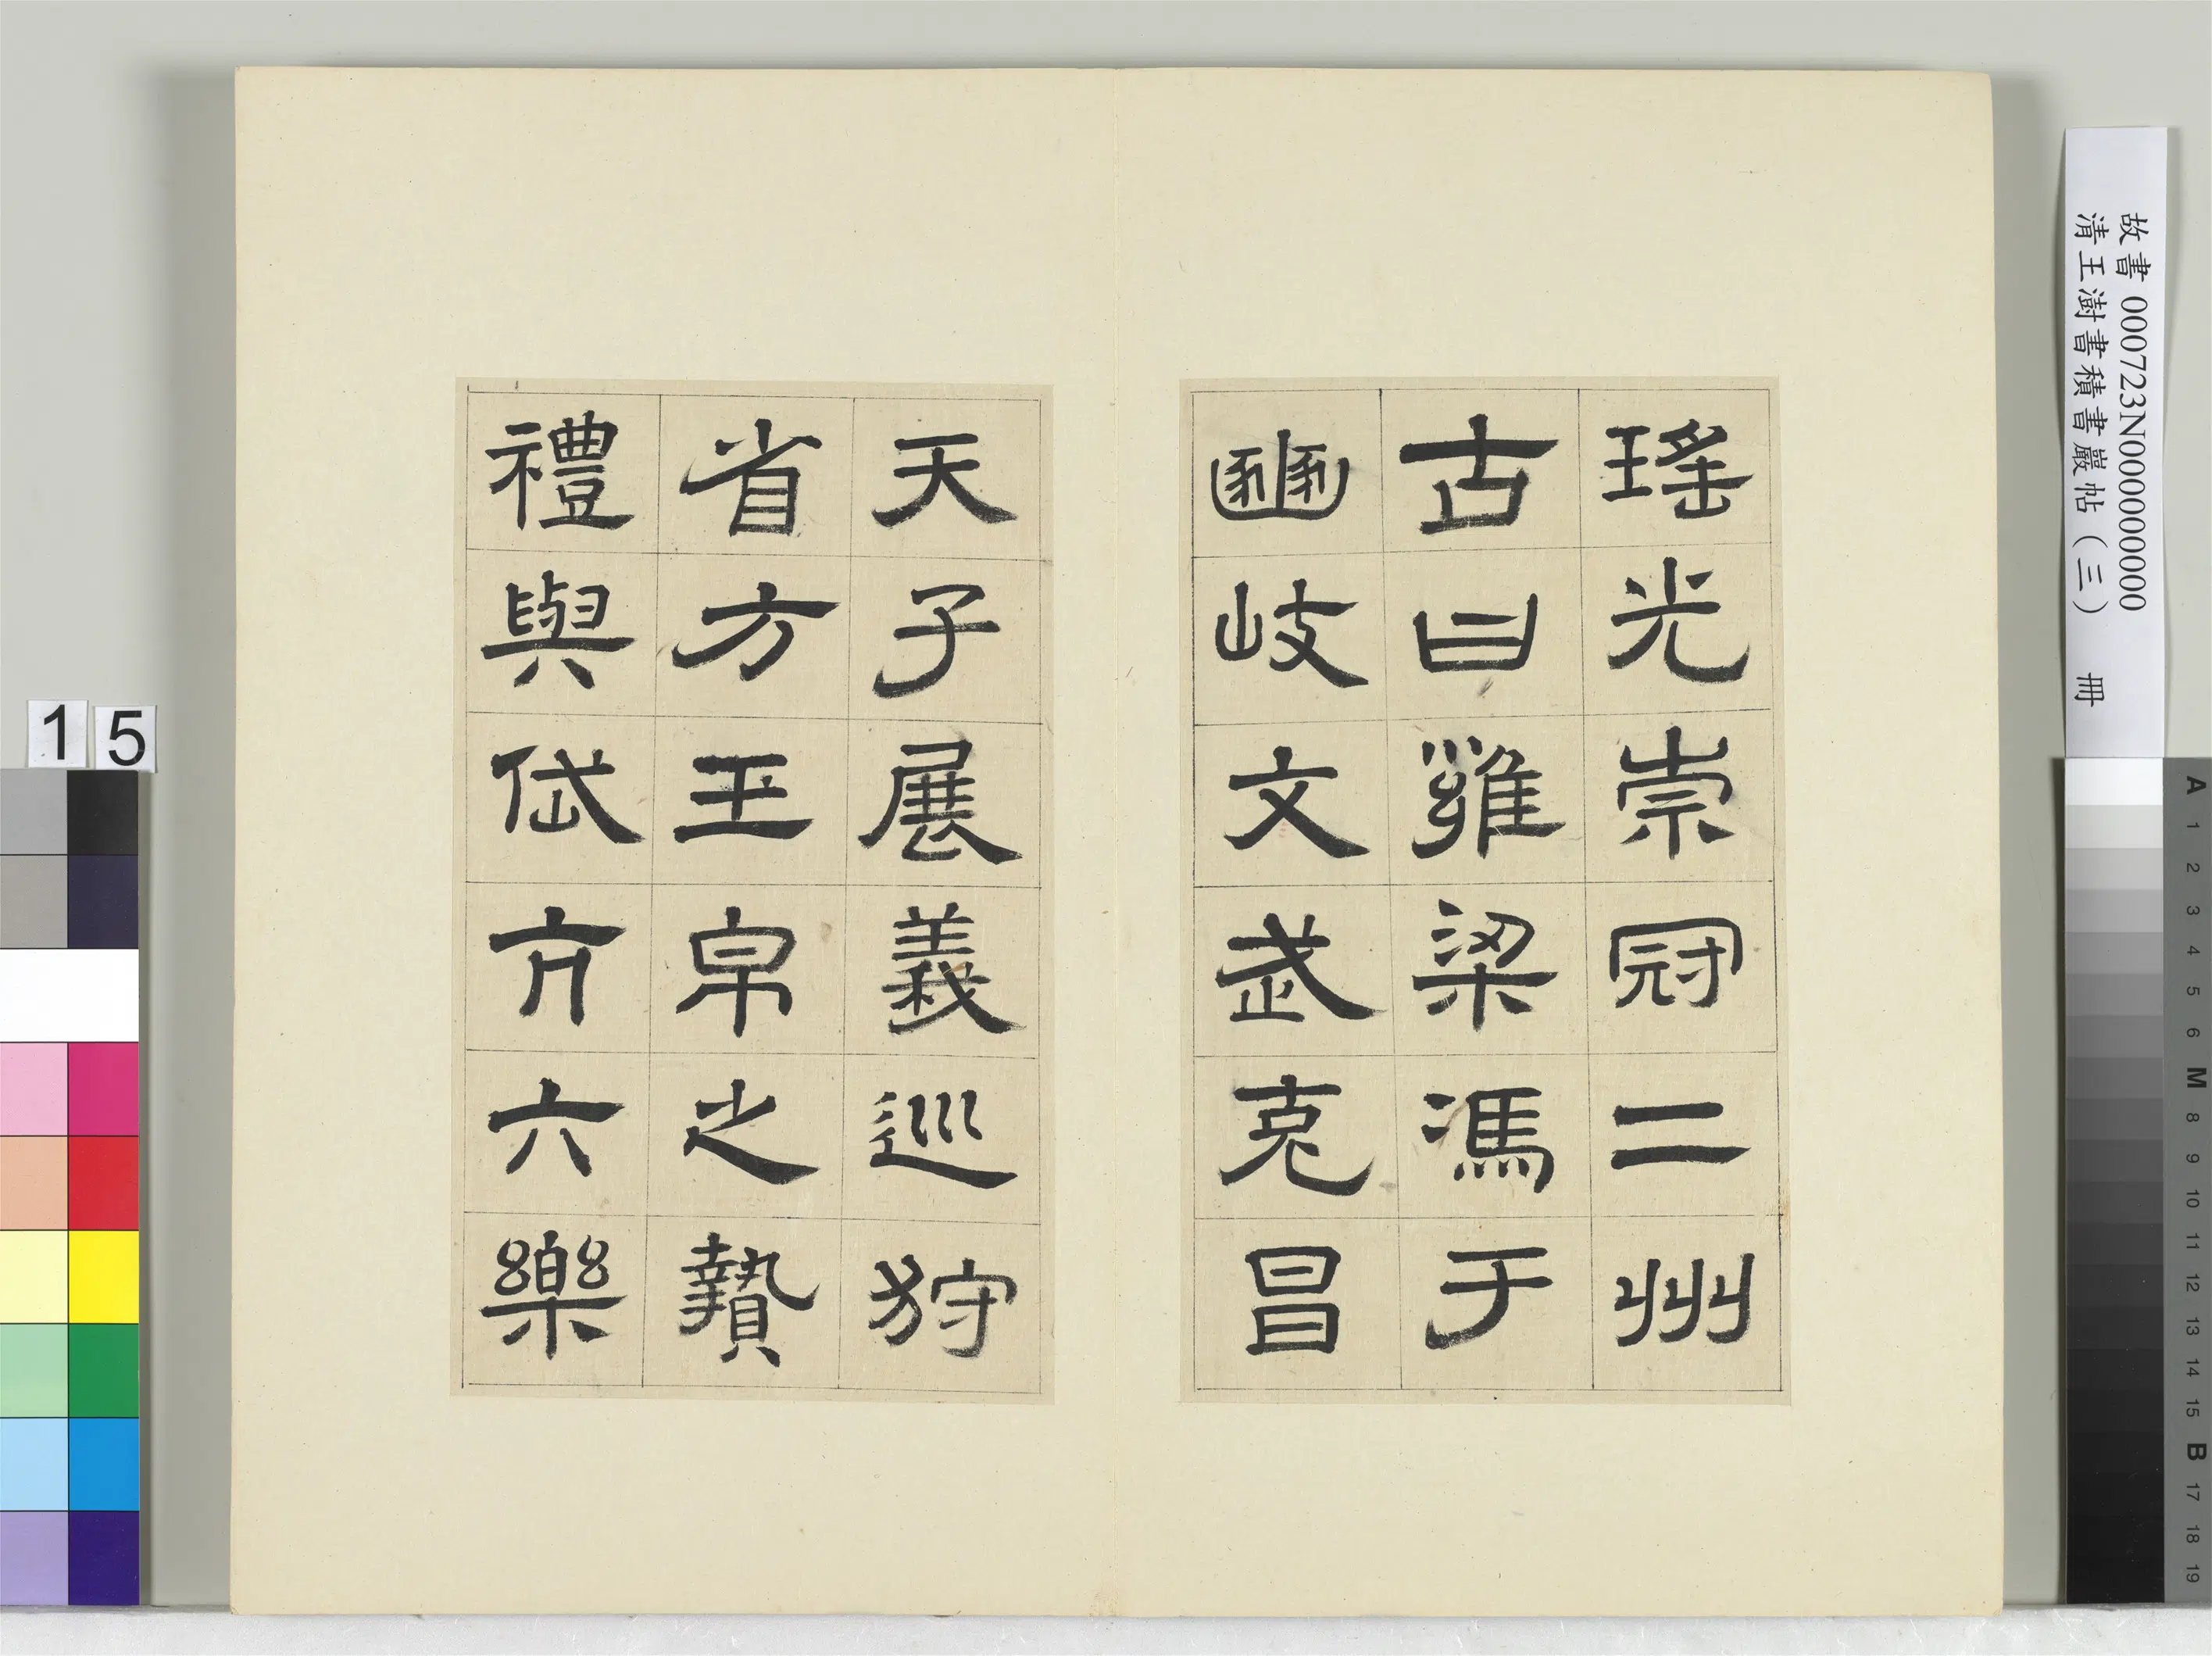 瑤光崇冠二州
古曰雍梁馮于
豳岐文武克昌
天子展義巡狩
省方玉帛之贄
禮與岱亢六樂
故書 000723N000000000
清王澍書積書巖帖（三） 冊
15
A 1 2 3 4 5 6 M 8 9 10 11 12 13 14 15 B 17 18 19